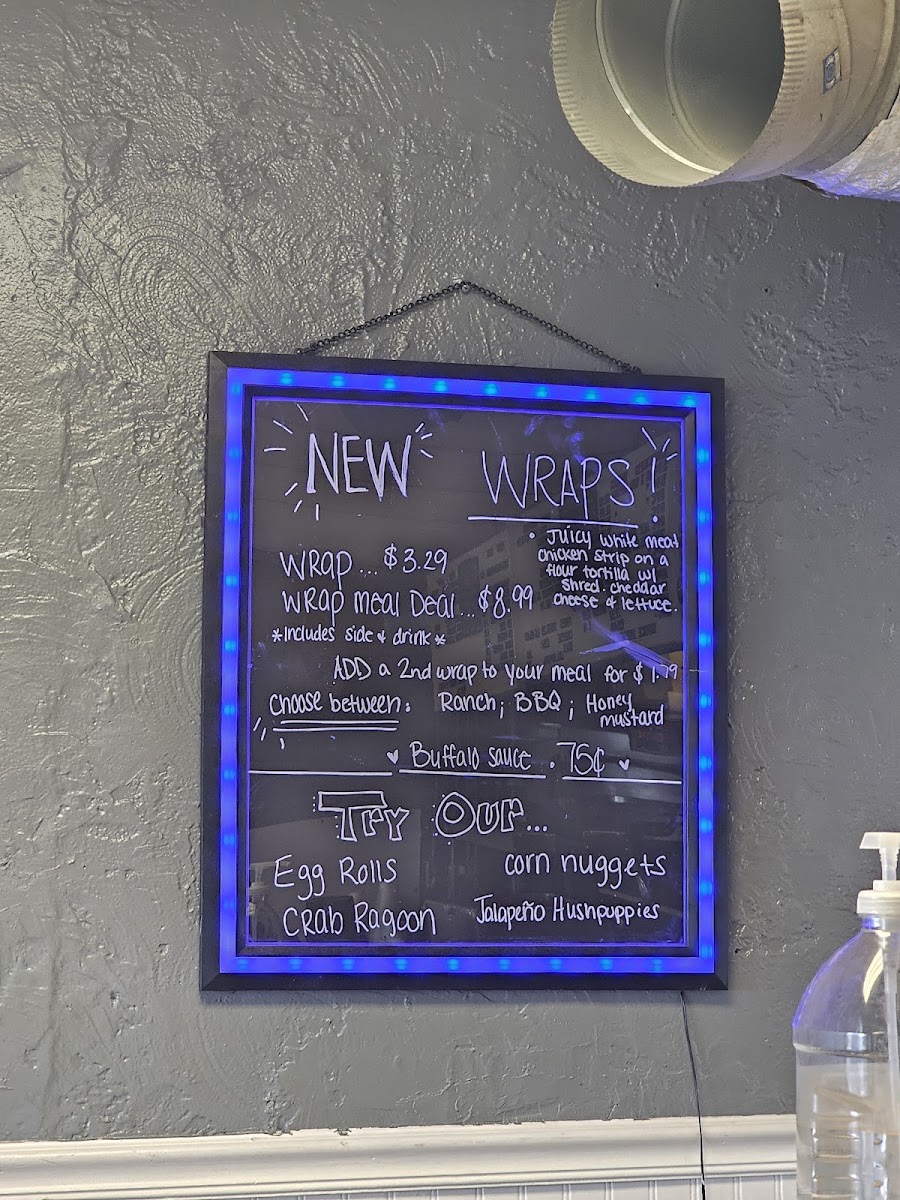 NEW WRAPS!
• Juicy white meat
chicken strip on a
flour tortilla w/
shred. cheddar
cheese & lettuce.
Wrap... $3.29
Wrap meal Deal... $8.99
*Includes side & drink*
ADD a 2nd wrap to your meal for $1.79
Choose between: Ranch; BBQ; Honey
mustard
Buffalo sauce . 75¢
Try Our...
Egg Rolls
corn nuggets
Crab Ragoon
Jalapeño Hushpuppies